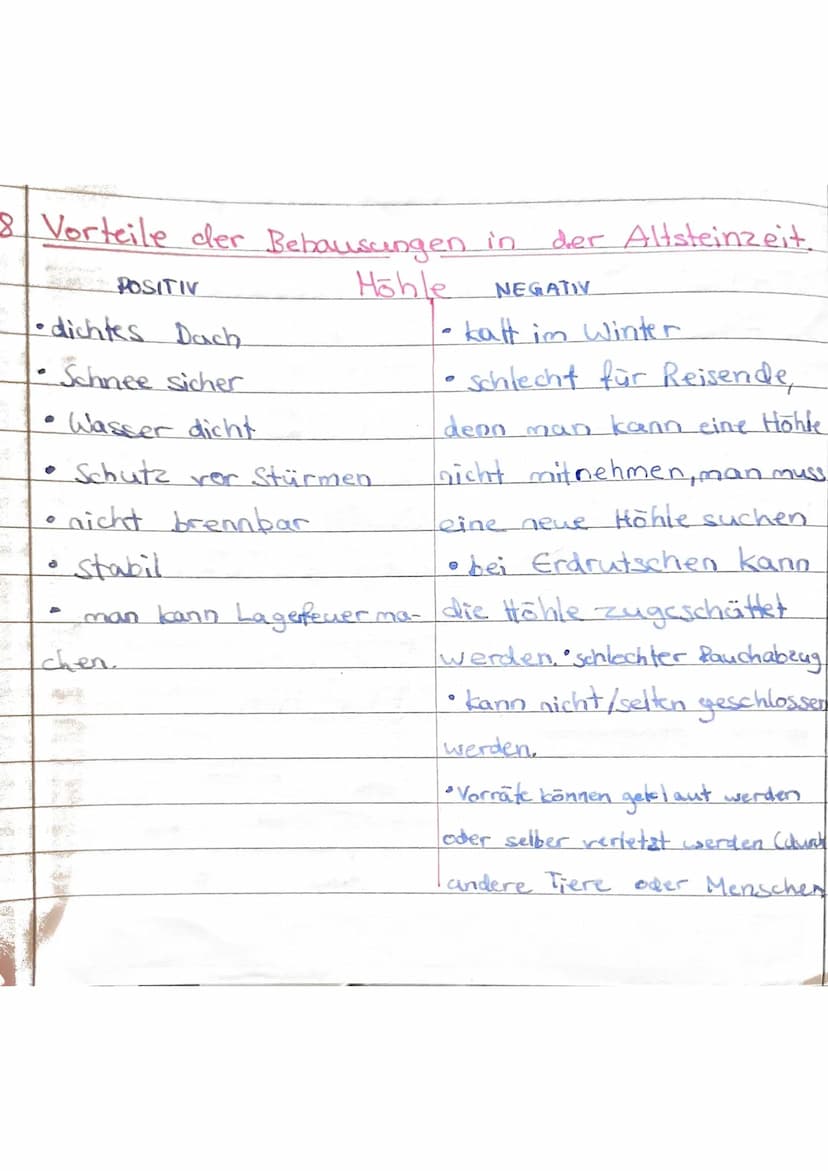 8 Vorteile der Behausungen in der Altsteinzeit.
Höhle
POSITIV
• dichtes Dach
• Schnee sicher
• Wasser dicht
• Schutz vor Stürmen
• nicht brennbar
• stabil
• man kann Lagefeuer ma-
chen.
NEGATIV
• kalt im Winter
• schlecht für Reisende,
denn man kann eine Höhle
nicht mitnehmen, man muss
eine neue Höhle suchen
• bei Erdrutschen kann
die Höhle zugeschüttet
werden. • schlechter Rauchabzug
• kann nicht/selten geschlossen
werden.
• Vorräte können geklaut werden
oder selber verletzt werden (durch
andere Tiere oder Menschen